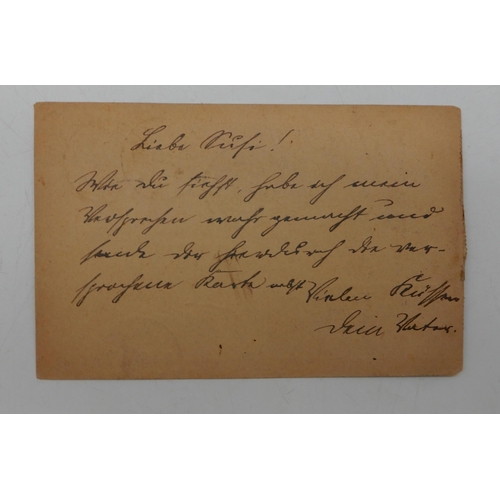 Liebe Susi!
Wie Du siehst, habe ich mein
Versprechen wahr gemacht und
sende Dir hierdurch die ver-
sprochene Karte nebst Vielen Küssen
Dein Vater.